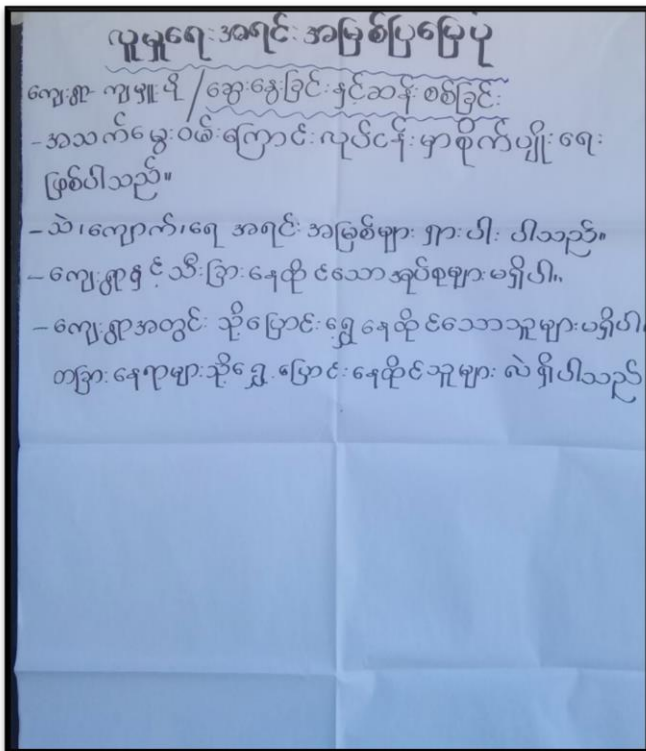 လူမှုရေး အရင်း အမြစ်ပြမြေပုံ
ကျေးရွာ- ကျမှူးပို / ဆွေးနွေးခြင်း နှင့်ဆန်း စစ်ခြင်း
-အသက်မွေးဝမ်းကြောင်းလုပ်ငန်းမှာစိုက်ပျိုးရေး
ဖြစ်ပါသည်။
-သဲ၊ကျောက်၊ရေ အရင်း အမြစ်များ ရှားပါး ပါသည်။
-ကျေးရွာနှင့်သီးခြားနေထိုင်သောအုပ်စုများမရှိပါ။
-ကျေးရွာအတွင်း သို့ပြောင်းရွှေ့နေထိုင်သောသူများမရှိပါ
တခြားနေရာများသို့ရွှေ့ပြောင်းနေထိုင်သူများ လဲ ရှိပါသည်